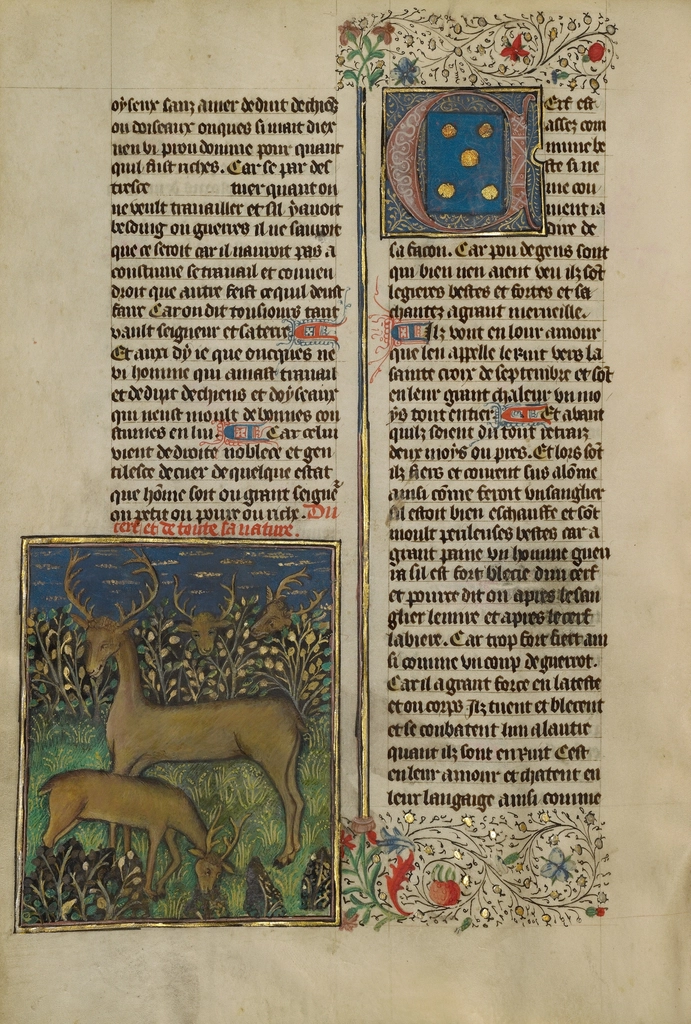 oyseux sanz amer deduit de chiens
ou doiseaux onques si mait diex
nen vi prou domme pour quant
quil fust riches. Car se par des
tresce tuer quant on
ne veult travailler et sil y avoit
besoing ou guerres il ne sauroit
que ce seroit car il nauroit pas a
constume se travail et conuen
droit que autre feist ce quil deust
faire Car on dit tousiours tant
vault seigneur et sa terre
Et aussi dy ie que oncques ne
vi homme qui amast travail
et deduit de chiens et doyseaux
qui neust moult de bonnes con
stumes en lui Car celui
vient de droite noblece et gen
tilesce de cuer de quelque estat
que home soit ou grant seigne
ou petit ou poure ou riche. Du
cerf et de toute sa nature.
Cerf est
assez com
mune be
ste si ne
me con
uient ia
dire de
sa facon. Car pou de gens sont
qui bien nen aient veu ilz sot
legieres bestes et fortes et sa
chantez a grant merueille.
Ilz vont en lour amour
que len appelle le ruit vers la
sainte croix de septembre et sot
en leur grant chaleur un mo
ys tout entier Et auant
quilz soient du tout retraiz
deux moys ou pres. Et lors sot
ilz fiers et courent sus a lome
ainsi come feroit un sanglier
sil estoit bien eschauffe et sot
moult perileuses bestes car a
grant paine un homme gueri
ra sil est fort blecie dun cerf
et pource dit on apres le san
glier le mire et apres le cerf
la biere. Car trop fort fiert am
si comme un coup de guerrot.
Car il a grant force en la teste
et ou corps Ilz tuent et blecent
et se combatent lun a lautre
quant ilz sont en ruit Cest
en leur amour et chatent en
leur langaige ainsi comme